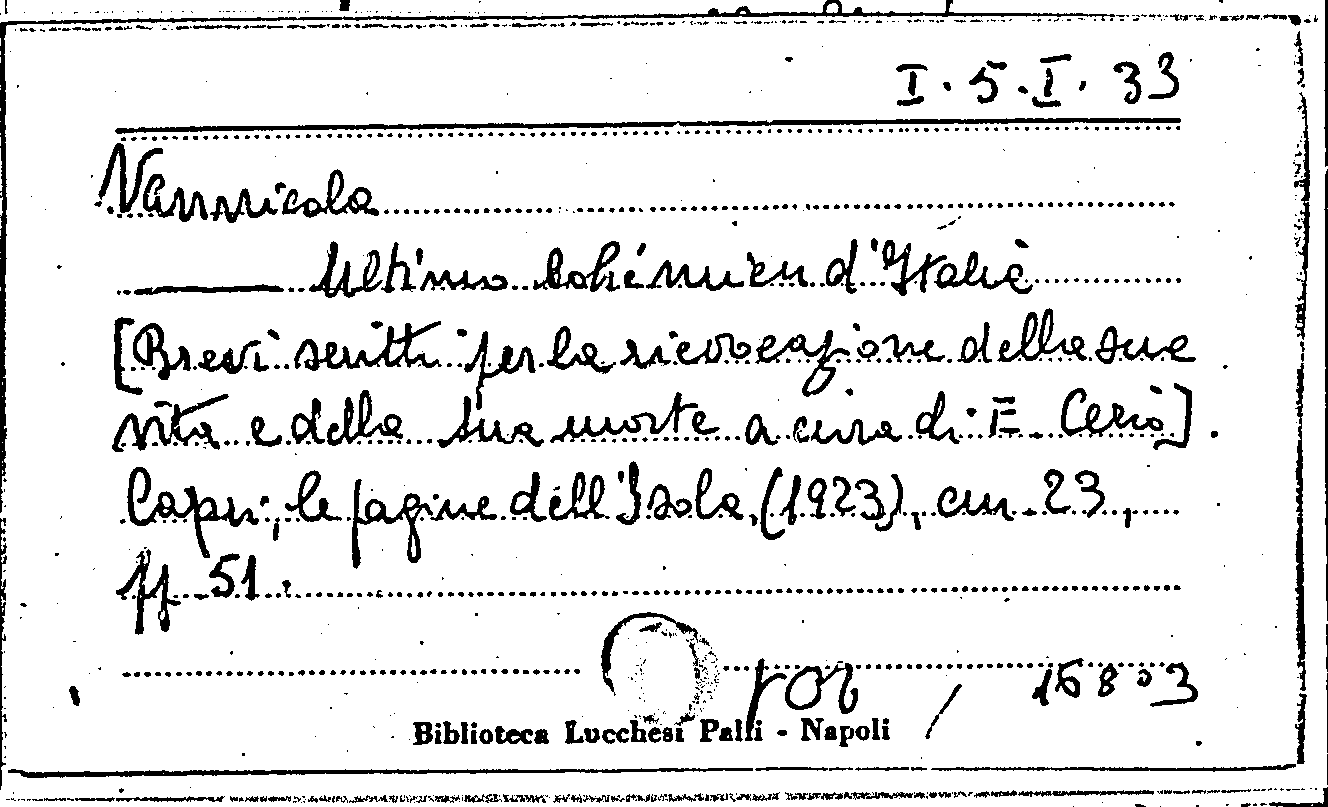 I. 5. I. 33
Vannicola
——— Ultimo bohémien d'Italia
[Brevi scritti per la rievocazione della sua
vita e della sua morte a cura di E. Cerio].
Capri, le pagine dell'Isola, (1923), cm. 23,
pp. 51.
/ 16803
Biblioteca Lucchesi Palli - Napoli